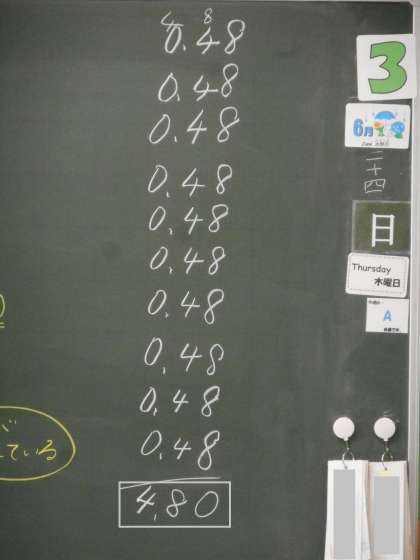 4 8
0.48
0.48
0.48
0.48
0.48
0.48
0.48
0.48
0.48
0.48
4.80
3
6月
June
二十四
日
Thursday
木曜日
A
ている